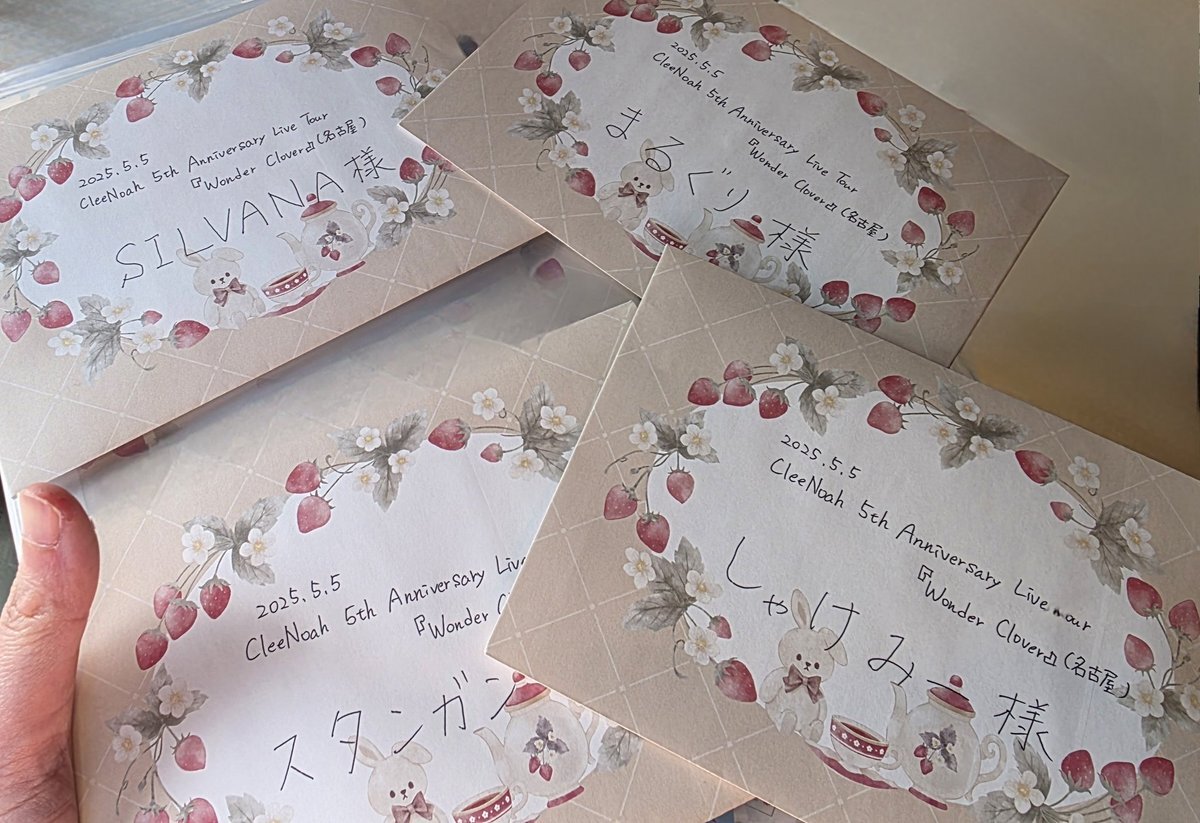 2025.5.5
CleeNoah 5th Anniversary Live Tour
『Wonder Clover』(名古屋)
SILVANA 様
2025.5.5
CleeNoah 5th Anniversary Live Tour
『Wonder Clover』(名古屋)
まるぐり様
2025.5.5
CleeNoah 5th Anniversary
『Wonder
スタンガン
2025.5.5
CleeNoah 5th Anniversary Live
『Wonder Clover』(名古屋)
しゃけみー様